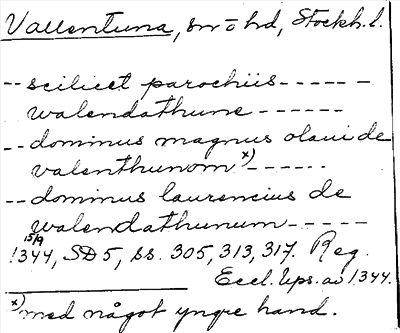 Vallentuna, sn o hd, Stockh. l.
-- scilicet parochiis -----
walendathune ------
-- dominus magnus olaui de
valenthunom x) ------
-- dominus laurencius de
walendathunum -----
15/9
1344, SD 5, ss. 305, 313, 317. Reg.
Eccl. Ups. av 1344.
x) med något yngre hand.